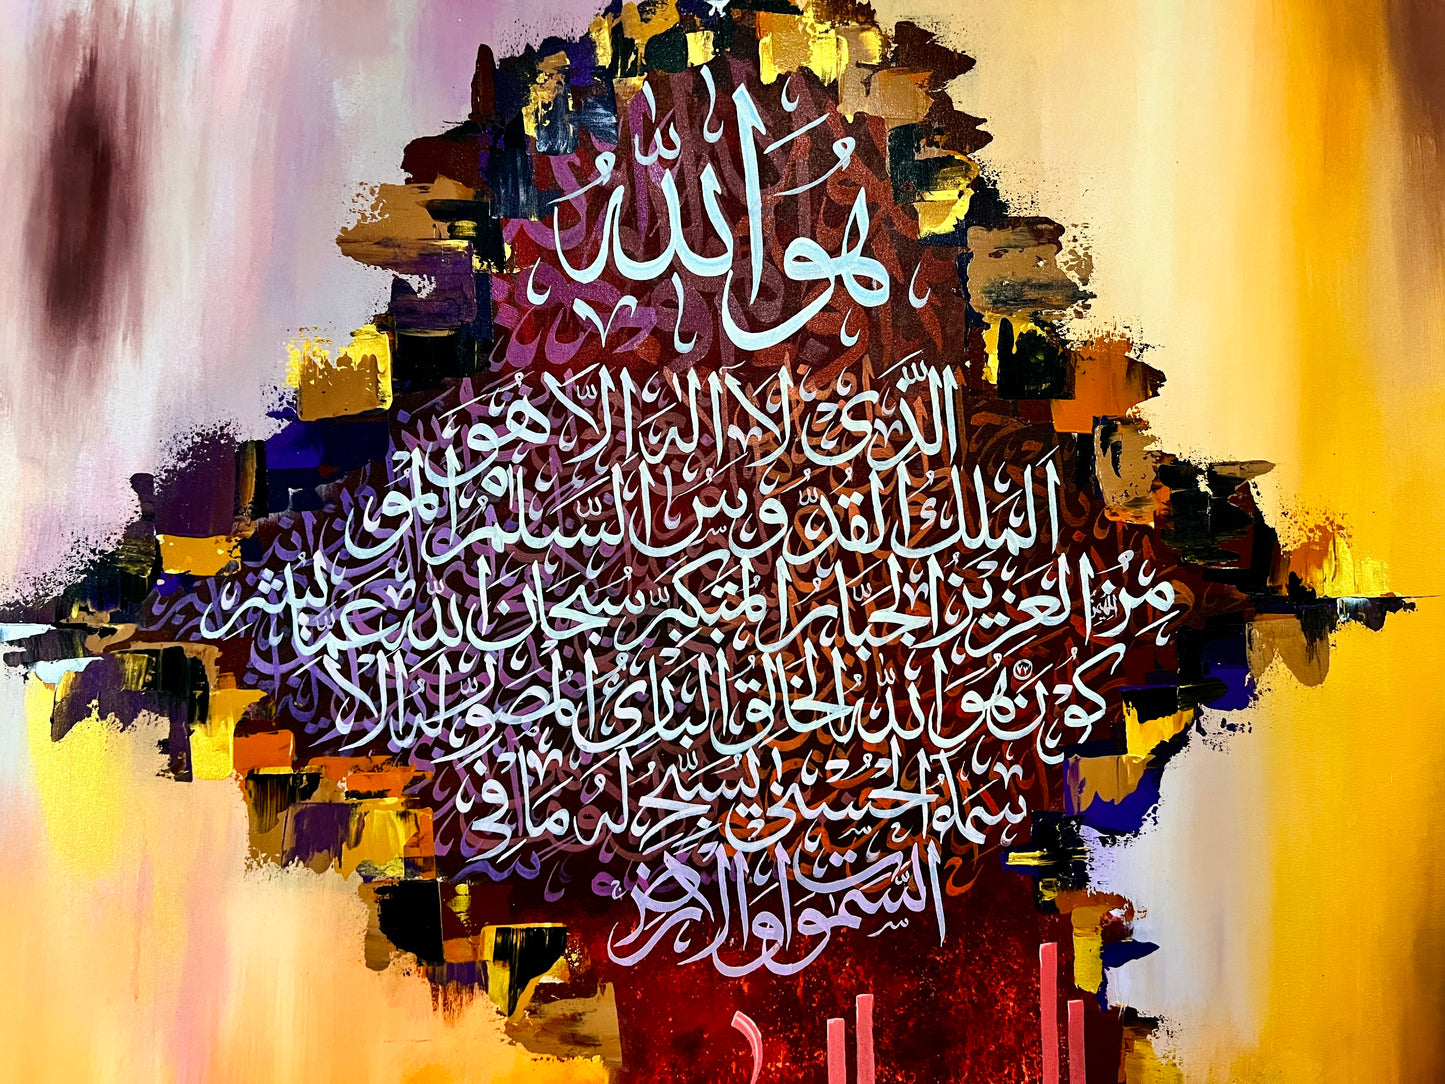 هُوَ اللّٰهُ
الَّذِي لَا إِلٰهَ إِلَّا هُوَ
الْمَلِكُ الْقُدُّوسُ السَّلٰمُ الْمُؤْ
مِنُ الْعَزِيزُ الْجَبَّارُ الْمُتَكَبِّرُ سُبْحَانَ اللّٰهِ عَمَّا يُشْرِ
كُونَ ٢٣ هُوَ اللّٰهُ الْخَالِقُ الْبَارِئُ الْمُصَوِّرُ لَهُ الْأَ
سْمَاءُ الْحُسْنٰى يُسَبِّحُ لَهُ مَا فِي
السَّمٰوَاتِ وَالْأَرْضِ